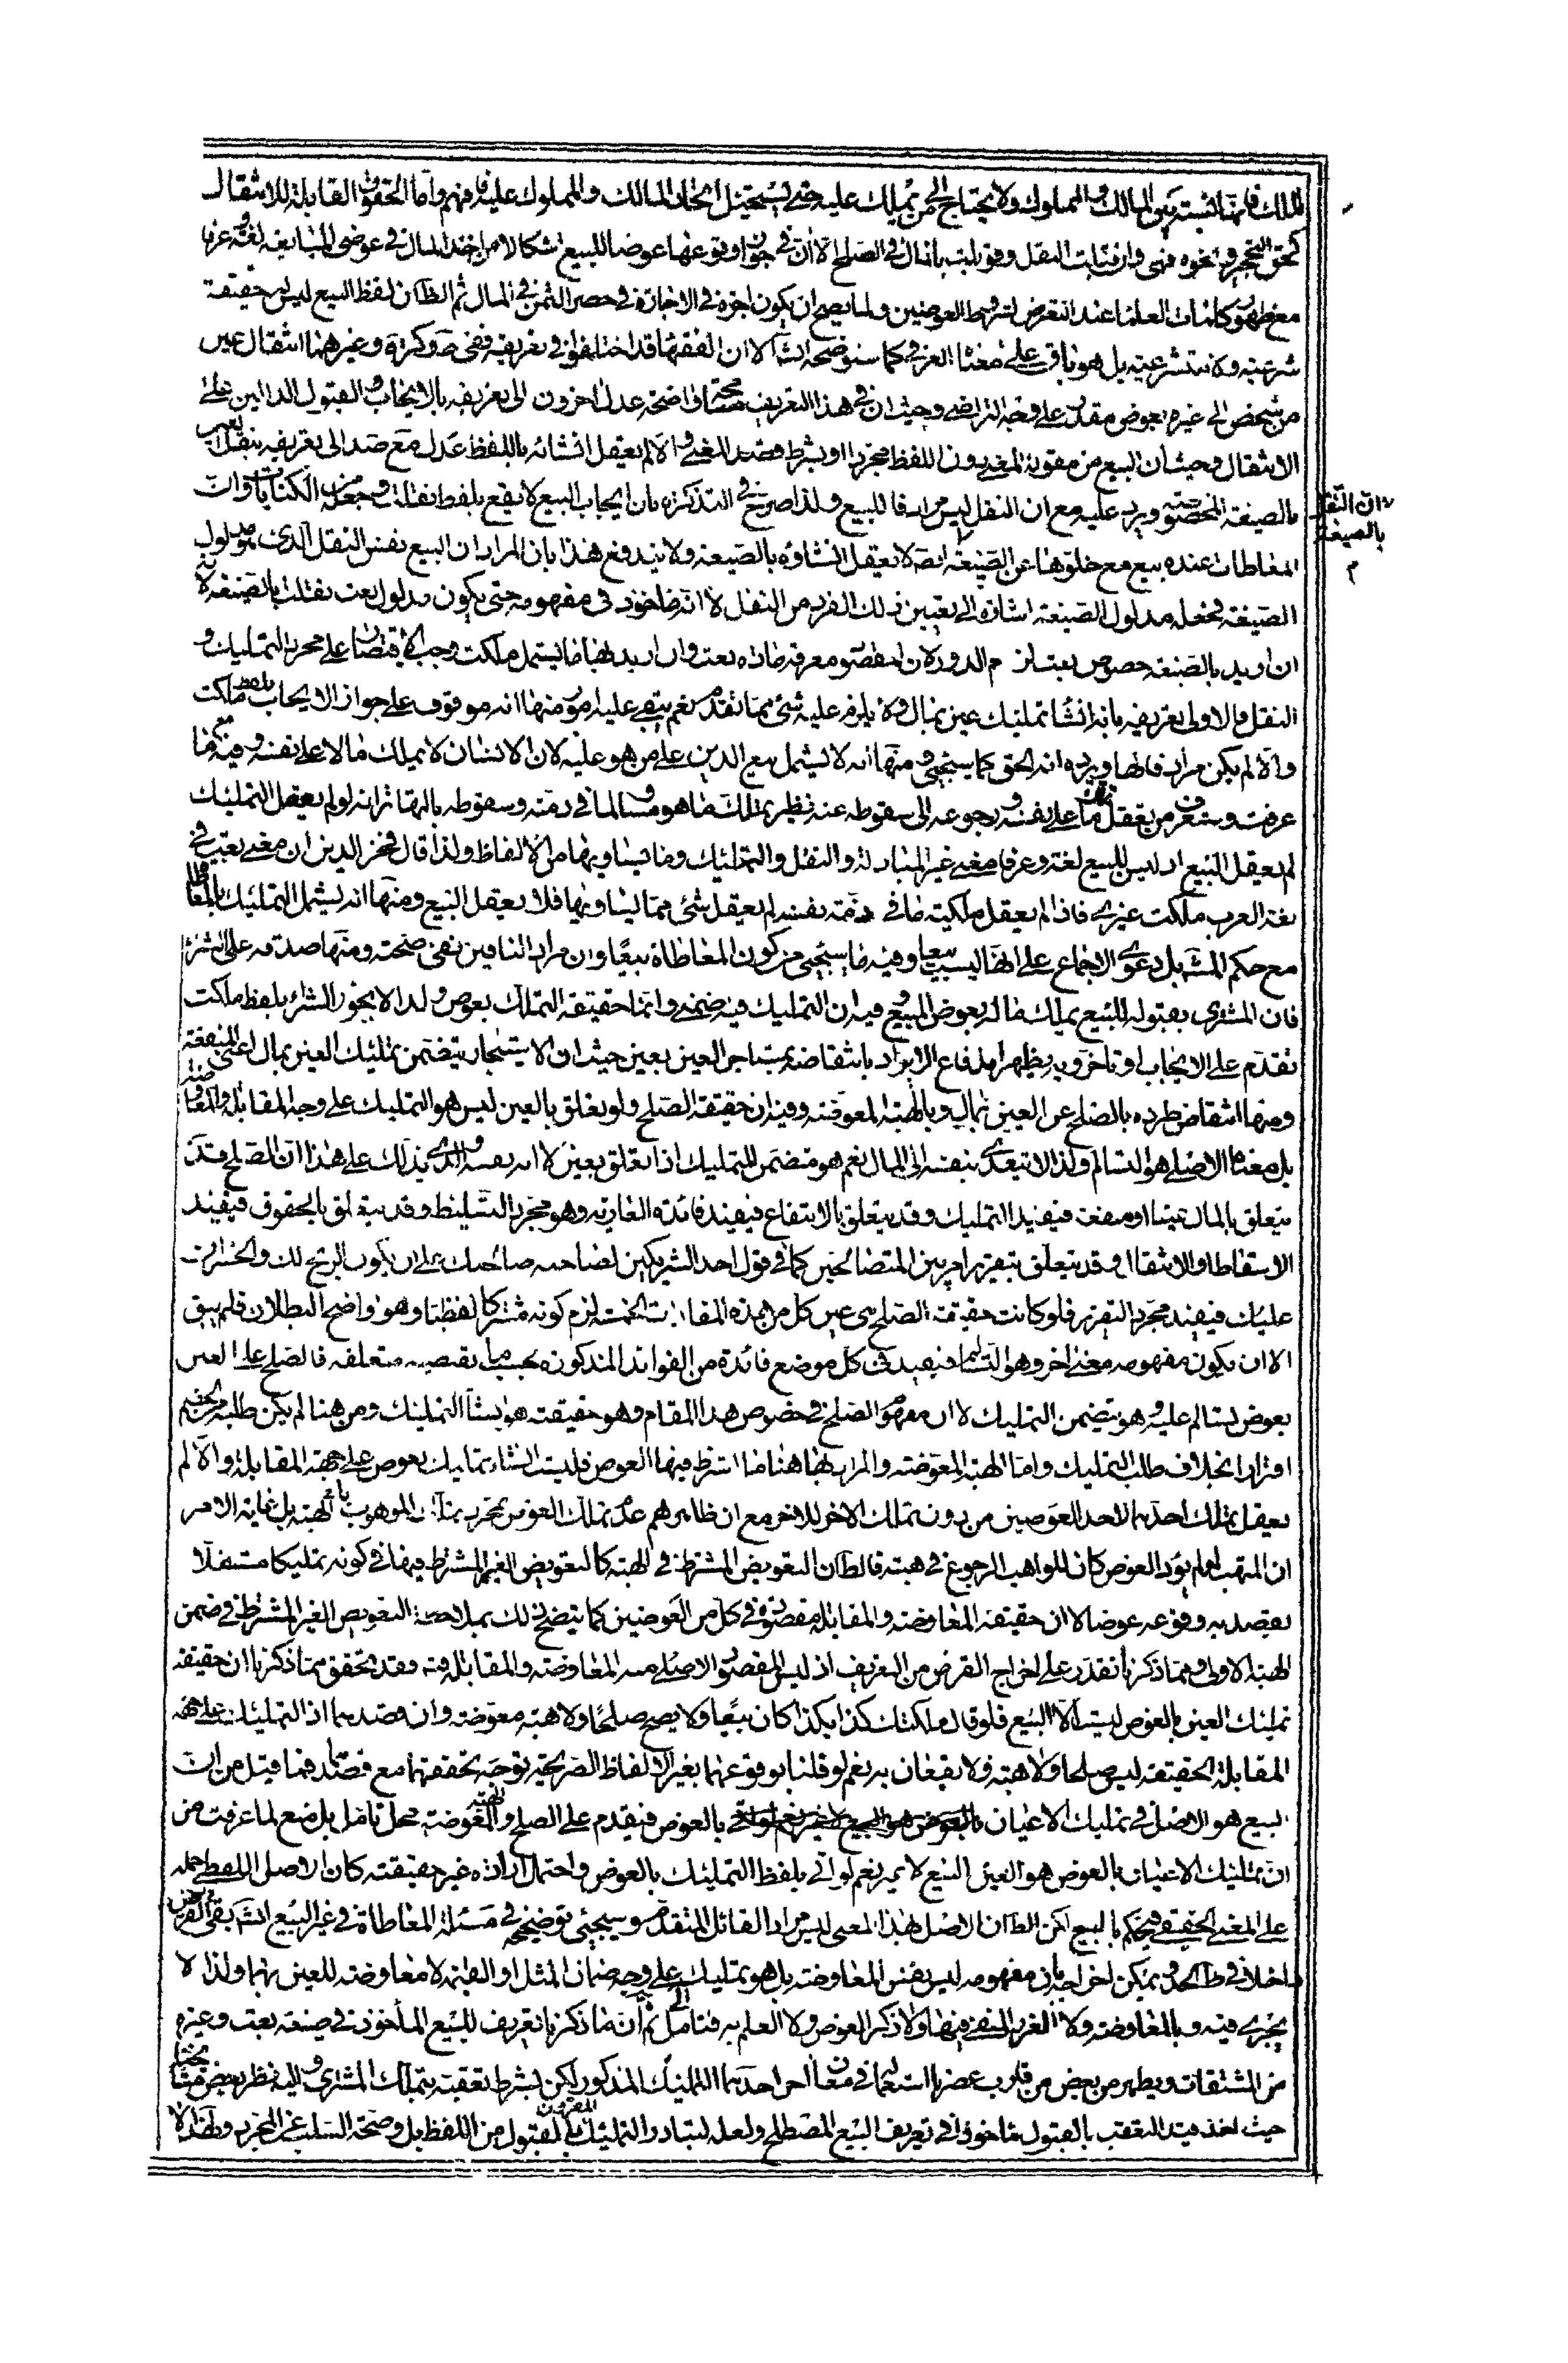 الملك فانها نسبة بين المالك والمملوك ولا يحتاج الى من يملك عليه حتى يستحيل اتحاد المالك والمملوك عليه فافهم واما الحقوق القابلة للانتقال
كحق التحجير ونحوه فهى وان قبلت النقل وقوبلت بالمال فى الصلح الا ان فى جواز وقوعها عوضا للبيع اشكالا من اخذ المال فى عوضى المبايعة لغة وعرفا
مع ظهور كلمات العلماء عند التعرض لشروط العوضين ولما يصح ان يكون اجرة فى الاجارة فى حصر الثمن فى المال ثم الظ ان لفظ البيع ليس له حقيقة
شرعية ولا متشرعية بل هو باق على معناه العرفى كما سنوضحه انشاء الا ان الفقهاء قد اختلفوا فى تعريفه ففى ط وكرة وغيرهما انتقال عين
من شخص الى غيره بعوض مقدر على وجه التراضى وحيث ان فى هذا التعريف مسامحة واضحة عدل اخرون الى تعريفه بالايجاب والقبول الدالين على
الانتقال وحيث ان البيع من مقولة المعنى دون اللفظ مجردا او بشرط قصد المعنى والا لم يعقل انشائه باللفظ عدل مع صد الى تعريفه بنقل العين
بالصيغة المخصوصة ويرد عليه مع ان النقل ليس مرادفا للبيع ولذا صرح فى التذكرة بان ايجاب البيع لا يقع بلفظ نقلت وجعله من الكنايات وان
المعاطات عنده بيع مع خلوها عن الصيغة ان النقل بالصيغة ايضا لا يعقل انشاؤه بالصيغة ولا يندفع هذا بان المراد ان البيع نفس النقل الذى هو مدلول
الصيغة فجعله مدلول الصيغة اشارة الى تعيين ذلك الفرد من النقل لا انه ماخوذ فى مفهومه حتى يكون مدلول بعت نقلت بالصيغة لانه
ان اريد بالصيغة خصوص بعت لزم الدور لان المقصود معرفة مادة بعت وان اريد بها ما يشمل ملكت وجب الاقتصار على مجرد التمليك و
النقل فالاولى تعريفه بانه انشاء تمليك عين بمال ولا يلزم عليه شئ مما تقدم نعم يبقى عليه امور منها انه موقوف على جواز الايجاب بلفظ ملكت
والا لم يكن مرادفا لها ويرده انه الحق كما سيجيئ ومنها انه لا يشمل بيع الدين على من هو عليه لان الانسان لا يملك مالا على نفسه وفيه مع ما
عرفت وستعرف من تعقل تملك ما على نفسه ورجوعه الى سقوطه عنه نظير تملك ما هو مساو لما فى ذمته وسقوطه بالتهاتر انه لو لم يعقل التمليك
لم يعقل البيع اذ ليس للبيع لغة وعرفا معنى غير المبادلة والنقل والتمليك وما يساويها من الالفاظ ولذا قال فخر الدين ان معنى بعت فى
لغة العرب ملكت غيرى فاذا لم يعقل ملكية ما فى ذمة نفسه لم يعقل شئ مما يساويها فلا يعقل البيع ومنها انه يشمل التمليك بالمعاطاة
مع حكم المشهور بل دعوى الاجماع على انها ليست بيعا وفيه ما سيجيئ من كون المعاطاة بيعا وان مراد النافين نفى صحته ومنها صدقه على الشراء
فان المشترى بقبوله للبيع يملك ماله بعوض المبيع وفيه ان التمليك فيه ضمنى وانما حقيقته التملك بعوض ولذا لا يجوز الشراء بلفظ ملكت
تقدم على الايجاب او تاخر وبه يظهر اندفاع الايراد بانتقاضه بمستاجر العين بعين حيث ان الاستيجار يتضمن تمليك العين بمال اعنى المنفعة
ومنها انتقاض طرده بالصلح عن العين بمال وبالهبة المعوضة وفيه ان حقيقة الصلح ولو تعلق بالعين ليس هو التمليك على وجه المقابلة والمعاوضة
بل معناه الاصلى هو التسالم ولذا لا يتعدى بنفسه الى المال نعم هو متضمن للتمليك اذا تعلق بعين لا انه نفسه والذى يدلك على هذا ان الصلح قد
يتعلق بالمال عينا او منفعة فيفيد التمليك وقد يتعلق بالانتفاع فيفيد فائدة العارية وهو مجرد التسليط وقد يتعلق بالحقوق فيفيد
الاسقاط او الانتقال وقد يتعلق بتقرير امر بين المتصالحين كما فى قول احد الشريكين لصاحبه صالحتك على ان يكون الربح لك والخسران
عليك فيفيد مجرد التقرير فلو كانت حقيقة الصلح هى عين كل من هذه المفادات الخمسة لزم كونه مشتركا لفظيا وهو واضح البطلان فلم يبق
الا ان يكون مفهومه معنى اخر وهو التسالم فيفيد فى كل موضع فائدة من الفوائد المذكورة بحسب ما يقتضيه متعلقه فالصلح على العين
بعوض تسالم عليه وهو يتضمن التمليك لا ان مفهوم الصلح فى خصوص هذا المقام وهو حقيقته هو انشاء التمليك ومن هنا لم يكن طلبه من الخصم
اقرارا بخلاف طلب التمليك واما الهبة المعوضة والمراد بها هنا ما اشترط فيها العوض فليست انشاء تمليك بعوض على جهة المقابلة والا لم
يعقل تملك احدهما لاحد العوضين من دون تملك الاخر للاخر مع ان ظاهرهم عدم تملك العوض بمجرد تملك الموهوب بالهبة بل غاية الامر
ان المتهب لو لم يؤد العوض كان للواهب الرجوع فى هبته فالظ ان التعويض المشترط فى الهبة كالتعويض الغير المشترط فيها فى كونه تمليكا مستقلا
يقصد به وقوعه عوضا لا ان حقيقة المعاوضة والمقابلة مقصودة فى كل من العوضين كما يتضح ذلك بملاحظة التعويض الغير المشترط فى ضمن
الهبة الاولى ومما ذكرنا تقدر على اخراج القرض من التعريف اذ ليس المقصود الاصلى منه المعاوضة والمقابلة فت وقد تحقق مما ذكرنا ان حقيقة
تمليك العين بالعوض ليست الا البيع فلو قال ملكتك كذا بكذا كان بيعا ولا يصح صلحا ولا هبة معوضة وان قصدهما اذ التمليك على جهة
المقابلة الحقيقية ليس صلحا ولا هبة فلا يقعان به نعم لو قلنا بوقوعهما بغير الالفاظ الصريحة توجه تحققهما مع قصدهما فما قيل من ان
البيع هو الاصل فى تمليك الاعيان بالعوض فيقدم على الصلح والهبة المعوضة محل تامل بل منع لما عرفت من
ان تمليك الاعيان بالعوض هو البيع لا غير نعم لو اتى بلفظ التمليك بالعوض واحتمل ارادة غير حقيقته كان الاصل اللفظى حمله
على المعنى الحقيقى فيحكم بالبيع لكن الظ ان الاصل بهذا المعنى ليس مراد القائل المتقدم وسيجيئ توضيحه فى مسئلة المعاطاة فى غير البيع انشاء بقى القرض
داخلا فى ظ الحد ويمكن اخراجه بان مفهومه ليس نفس المعاوضة بل هو تمليك على وجه ضمان المثل او القيمة لا معاوضة للعين بهما ولذا لا
يجرى فيه ربا المعاوضة ولا الغرر المنفى فيها ولا ذكر العوض ولا العلم به فتامل ثم ان ما ذكرنا تعريف للبيع الماخوذ فى صيغة بعت وغيره
من المشتقات ويظهر من بعض من قارب عصرنا استعماله فى معان اخر احدها التمليك المذكور لكن بشرط تعقبه بتملك المشترى واليه نظر بعض مشايخنا
حيث اخذ قيد التعقب بالقبول ماخوذا فى تعريف البيع المصطلح ولعله لتبادر التمليك المقرون بالقبول من اللفظ بل وصحة السلب عن المجرد ولهذا لا